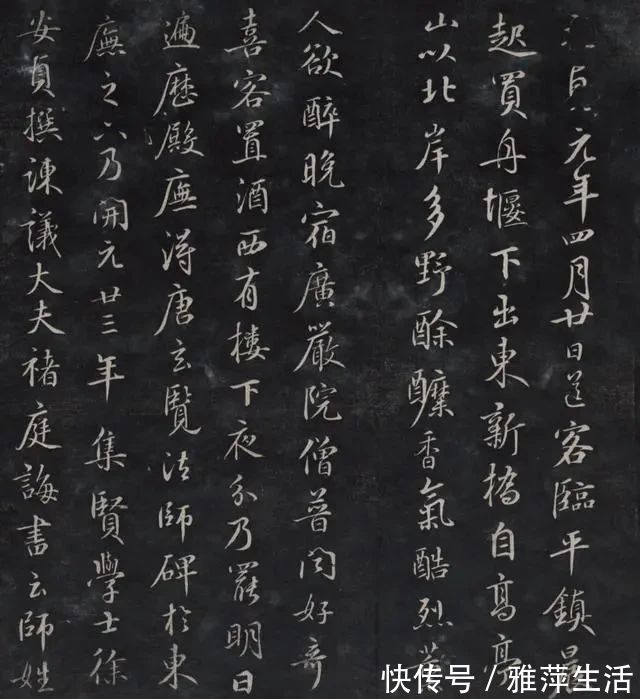 元年四月廿日送客臨平鎮晨
起買舟堰下出東新橋自高亭
山以北岸多野酴醾香氣酷烈
人欲醉晚宿廣嚴院僧普聞好奇
喜客置酒西有樓下夜分乃罷明日
遍歷殿廡得唐玄覽法師碑於東
廡之下乃開元廿三年集賢學士徐
安貞撰諫議大夫褚庭誨書云師姓
快传号/雅萍生活